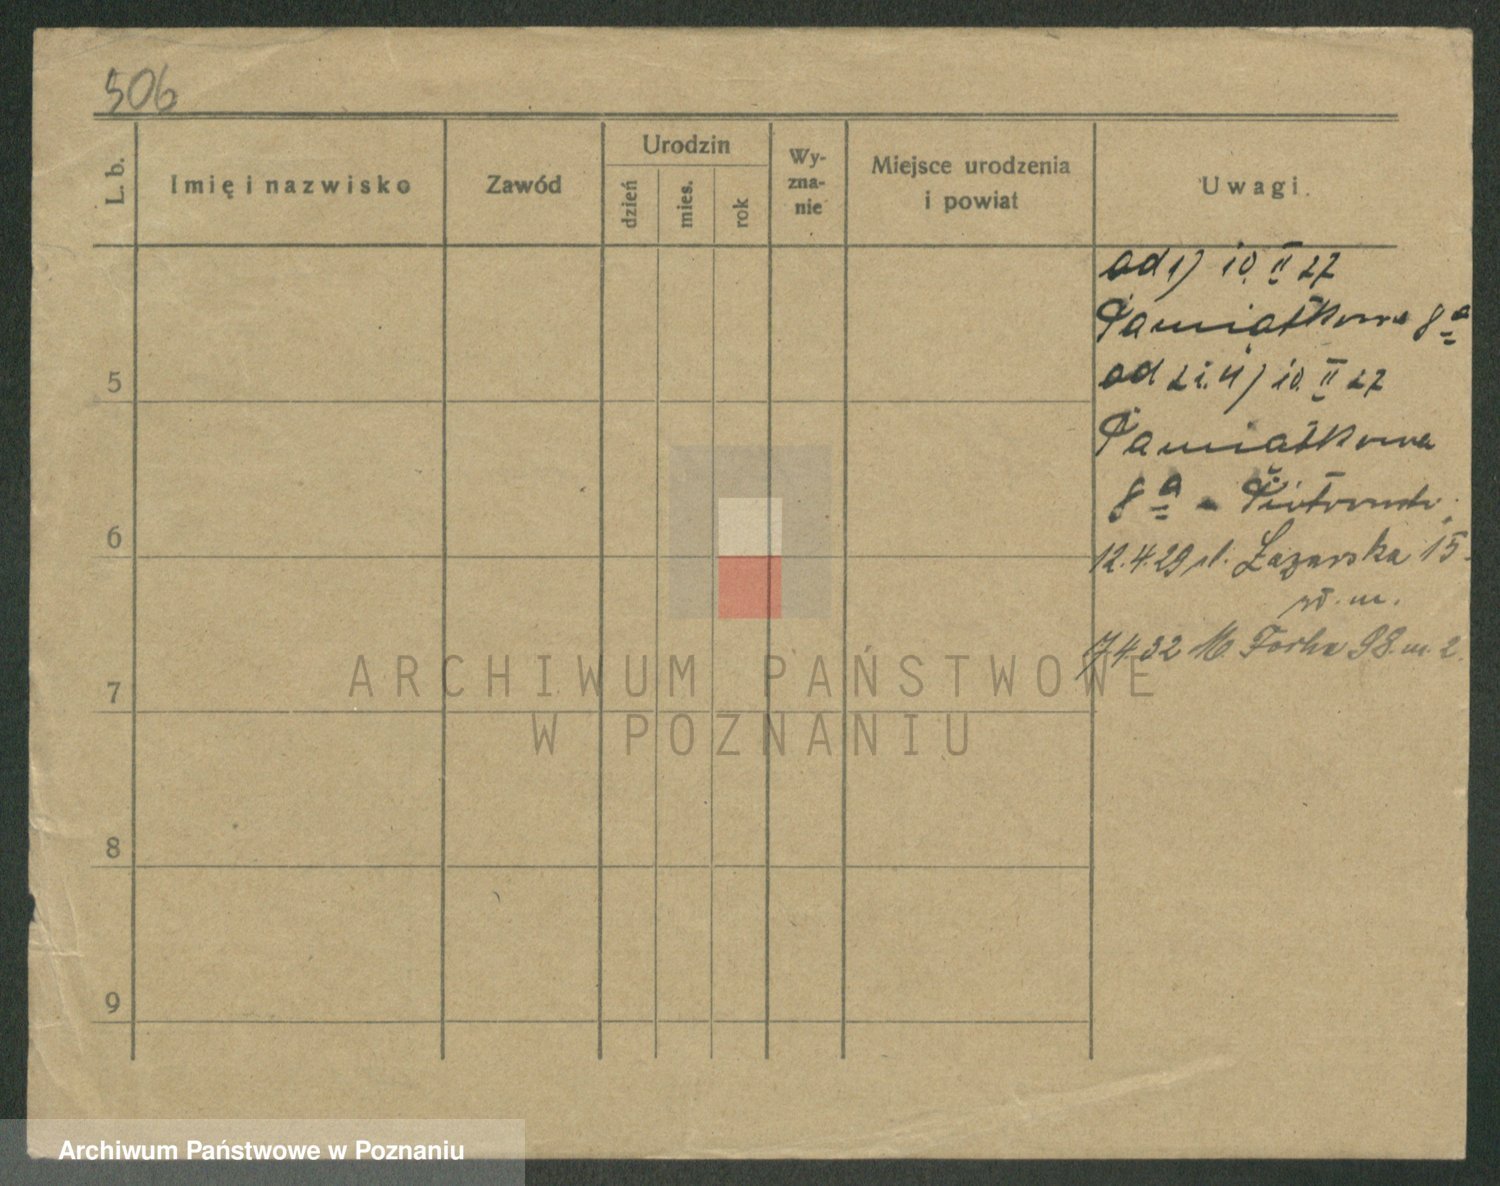 506
L. b.
Imię i nazwisko
Zawód
Urodzin
dzień
mies.
rok
Wy-
zna-
nie
Miejsce urodzenia
i powiat
Uwagi.
od 1) 10. II 27
Pamiątkowa 8a
5
od 2 i. 4) 10. II 27
Pamiątkowa
8a -
6
12.4.29 ul. Łazarska 15
w. m.
7.4.32 M. Focha 98. m. 2.
7
8
9
ARCHIWUM PAŃSTWOWE
W POZNANIU
Archiwum Państwowe w Poznaniu